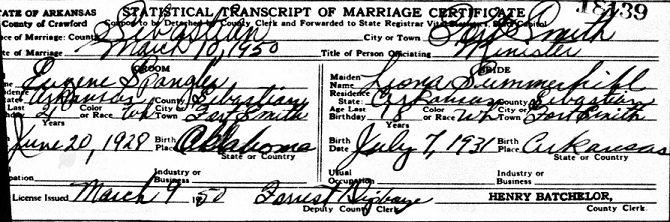 TATE OF ARKANSAS STATISTICAL TRANSCRIPT OF MARRIAGE CERTIFICATE 139
County of Crawford to be Detached by County Clerk and Forwarded to State Registrar
ce of Marriage: County Sebastian City or Town Fort Smith
te of Marriage March 10, 1950 Title of Person Officiating Minister
GROOM BRIDE
Eugene Spangler Maiden Name Summerhill
Residence
State: Arkansas County Sebastian State: Arkansas County Sebastian
Age Last Birthday 21 Years Color or Race Wh City or Town Fort Smith Age Last Birthday 18 Years Color or Race Wh City or Town Fort Smith
June 20, 1928 Birth Place Oklahoma Birth Date July 7, 1931 Birth Place Arkansas
State or Country State or Country
pation Industry or Business Usual Occupation Industry or Business
License Issued March 9 1950 Forrest HENRY BATCHELOR,
Deputy County Clerk County Clerk.